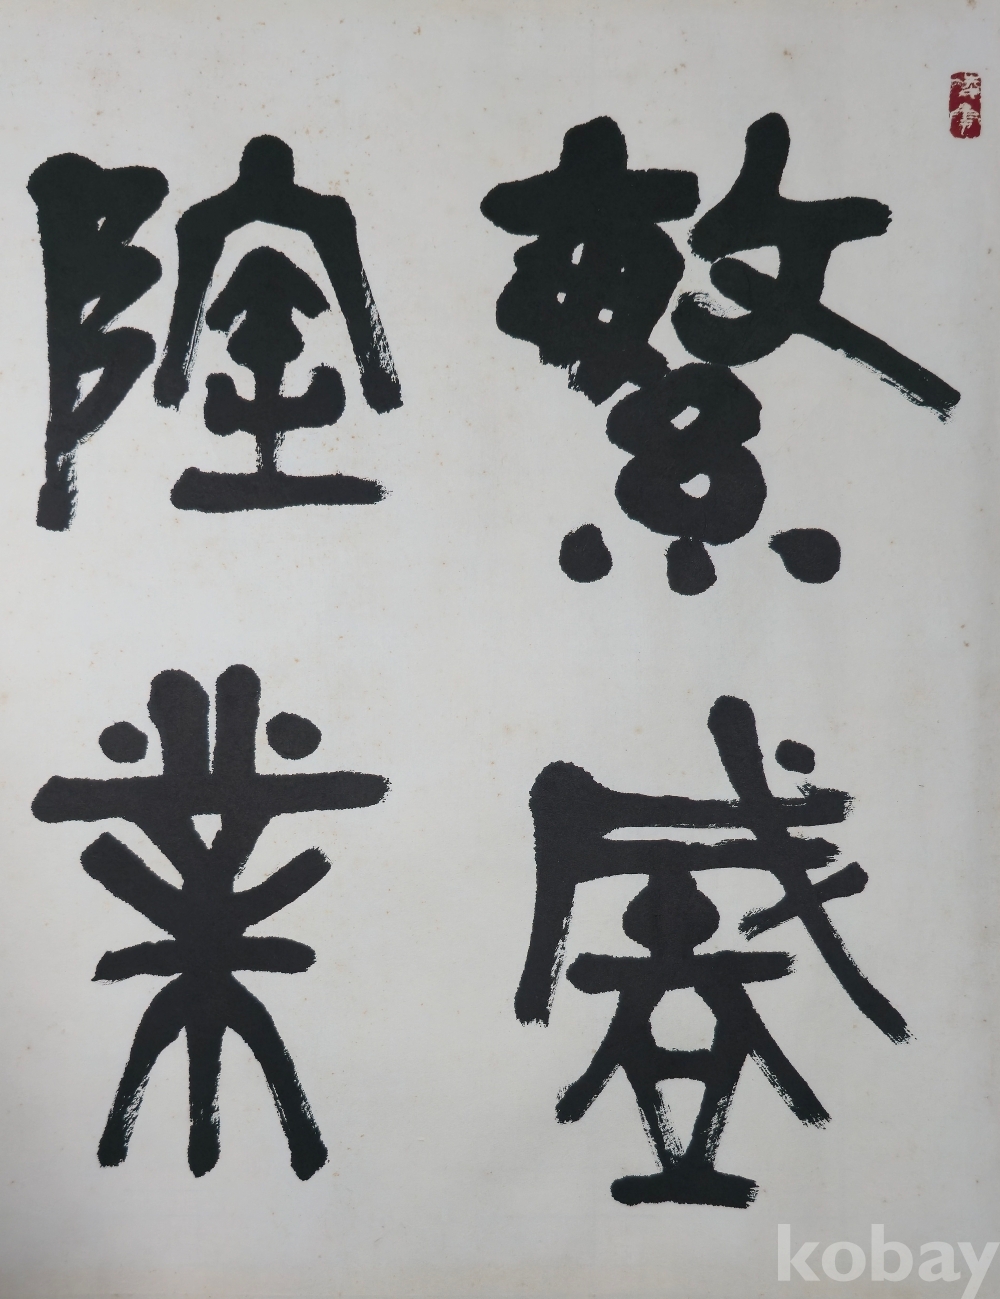 繁盛
隆業
kobay